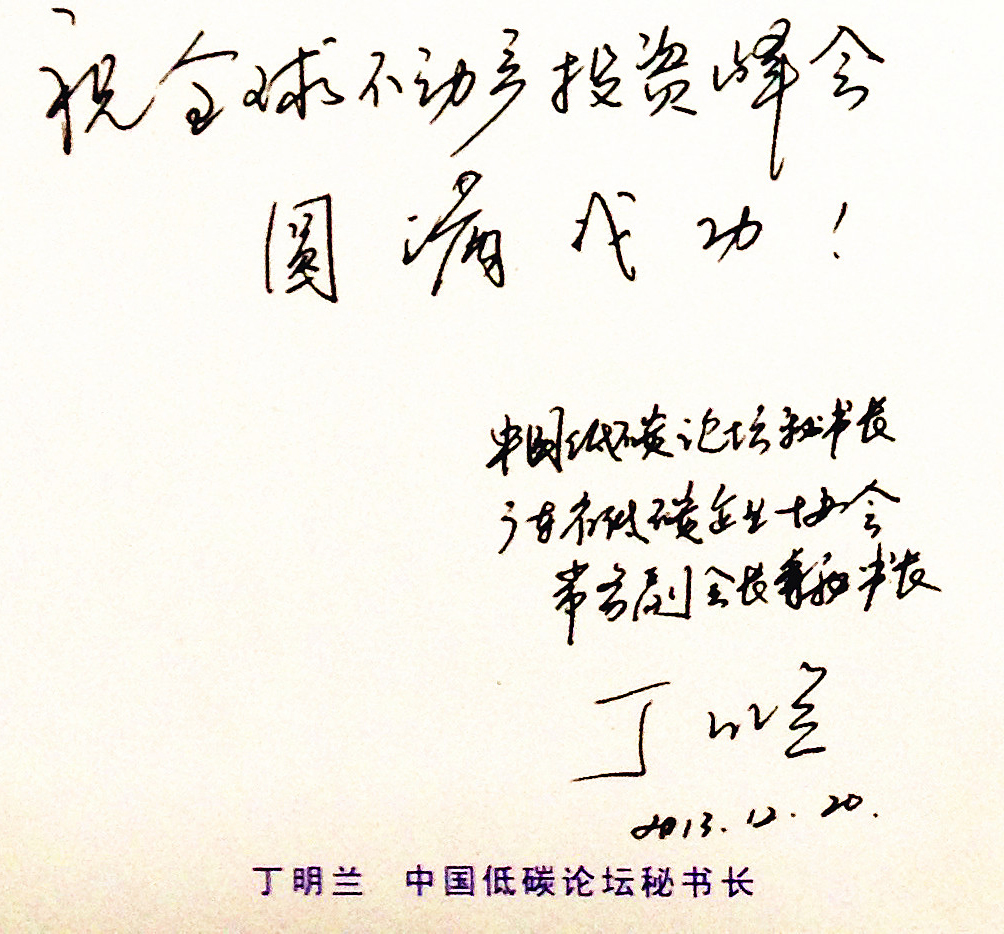 祝全球不动产投资峰会
圆满成功！
中国低碳论坛秘书长
广东省低碳企业协会
常务副会长兼秘书长
丁明兰
2013.12.20.
丁明兰 中国低碳论坛秘书长